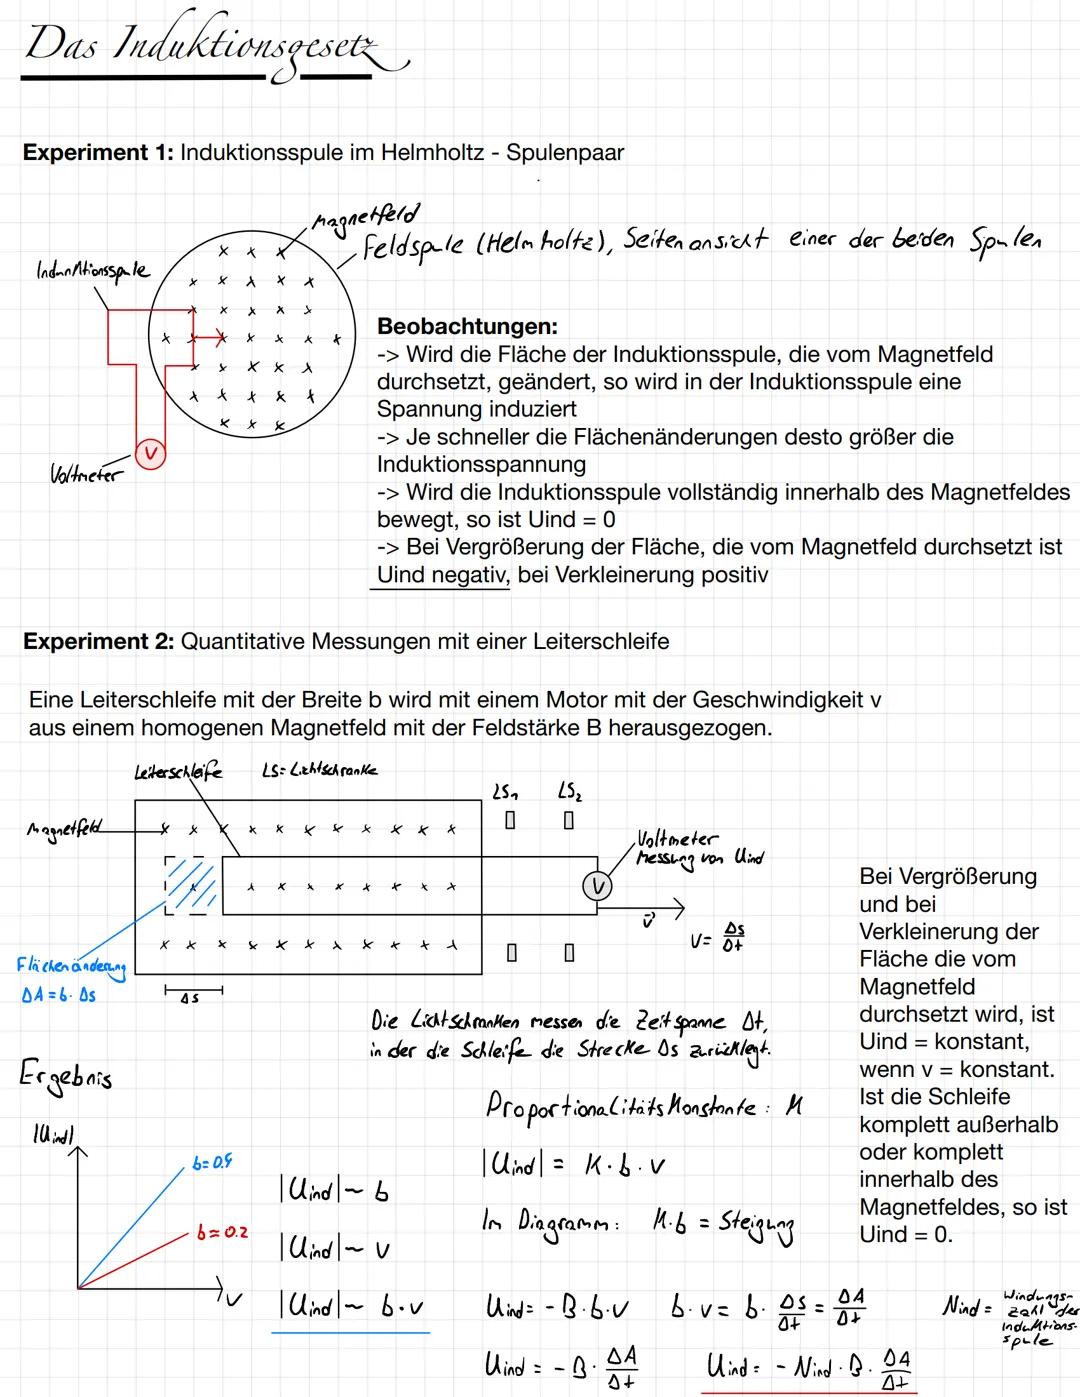 Das Induktionsgesetz
Experiment 1: Induktionsspule im Helmholtz - Spulenpaar
Magnetfeld
Feldspule (Helmholtz), Seitenansicht einer der beiden Spulen
Induktionsspule
Voltmeter
V
Beobachtungen:
-> Wird die Fläche der Induktionsspule, die vom Magnetfeld
durchsetzt, geändert, so wird in der Induktionsspule eine
Spannung induziert
-> Je schneller die Flächenänderungen desto größer die
Induktionsspannung
-> Wird die Induktionsspule vollständig innerhalb des Magnetfeldes
bewegt, so ist Uind = 0
-> Bei Vergrößerung der Fläche, die vom Magnetfeld durchsetzt ist
Uind negativ, bei Verkleinerung positiv
Experiment 2: Quantitative Messungen mit einer Leiterschleife
Eine Leiterschleife mit der Breite b wird mit einem Motor mit der Geschwindigkeit v
aus einem homogenen Magnetfeld mit der Feldstärke B herausgezogen.
Leiterschleife LS = Lichtschranke
LS₁ LS₂
Magnetfeld
Voltmeter
Messung von Uind
V
v⃗
V = Δs/Δt
Flächenänderung
ΔA = b · Δs
Δs
Die Lichtschranken messen die Zeitspanne Δt,
in der die Schleife die Strecke Δs zurücklegt.
Bei Vergrößerung
und bei
Verkleinerung der
Fläche die vom
Magnetfeld
durchsetzt wird, ist
Uind = konstant,
wenn v = konstant.
Ist die Schleife
komplett außerhalb
oder komplett
innerhalb des
Magnetfeldes, so ist
Uind = 0.
Ergebnis
|Uind|
b=0.4
b=0.2
v
|Uind| ~ b
|Uind| ~ v
|Uind| ~ b·v
Proportionalitäts Konstante: K
|Uind| = K·b·v
Im Diagramm: K·b = Steigung
Uind = -B·b·v b·v = b · Δs/Δt = ΔA/Δt
Nind = Windungs-
zahl der
Induktions-
spule
Uind = -B · ΔA/Δt
Uind = - Nind · B · ΔA/Δt